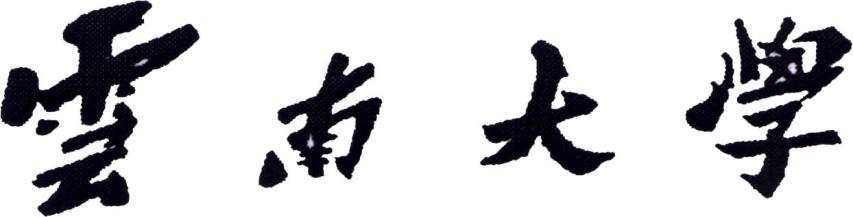 雲南大學